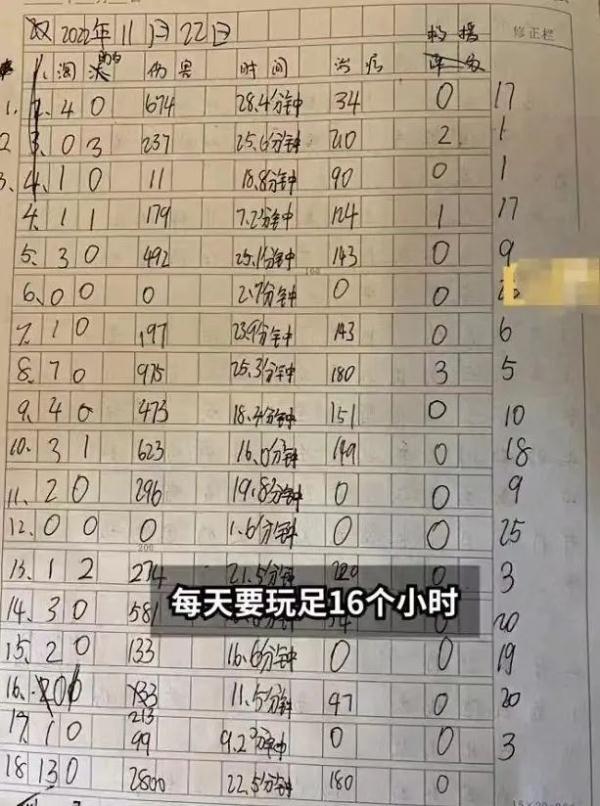 双 2022年11月22日 救援 修正栏
淘汰 助攻 伤害 时间 治疗
1. 4 0 674 28.4分钟 34 0 17
2. 0 3 237 25.6分钟 210 2 1
3. 1 0 11 18.8分钟 90 0 1
4. 1 1 179 7.2分钟 124 1 17
5. 3 0 492 25.1分钟 143 0 9
6. 0 0 0 2.7分钟 0 0
7. 1 0 197 23.9分钟 143 0 6
8. 7 0 975 25.3分钟 180 3 5
9. 4 0 473 18.4分钟 151 0 10
10. 3 1 623 16.0分钟 149 0 18
11. 2 0 296 19.8分钟 0 0 9
12. 0 0 0 1.6分钟 0 0 25
200
13. 1 2 274 21.5分钟 220 0 3
每天要玩足16个小时
14. 3 0 581 20
15. 2 0 133 16.6分钟 0 0 19
16. 0 0 11.5分钟 97 0 20
213
17. 1 0 99 9.2分钟 0 0 3
18 13 0 2800 22.5分钟 180 0